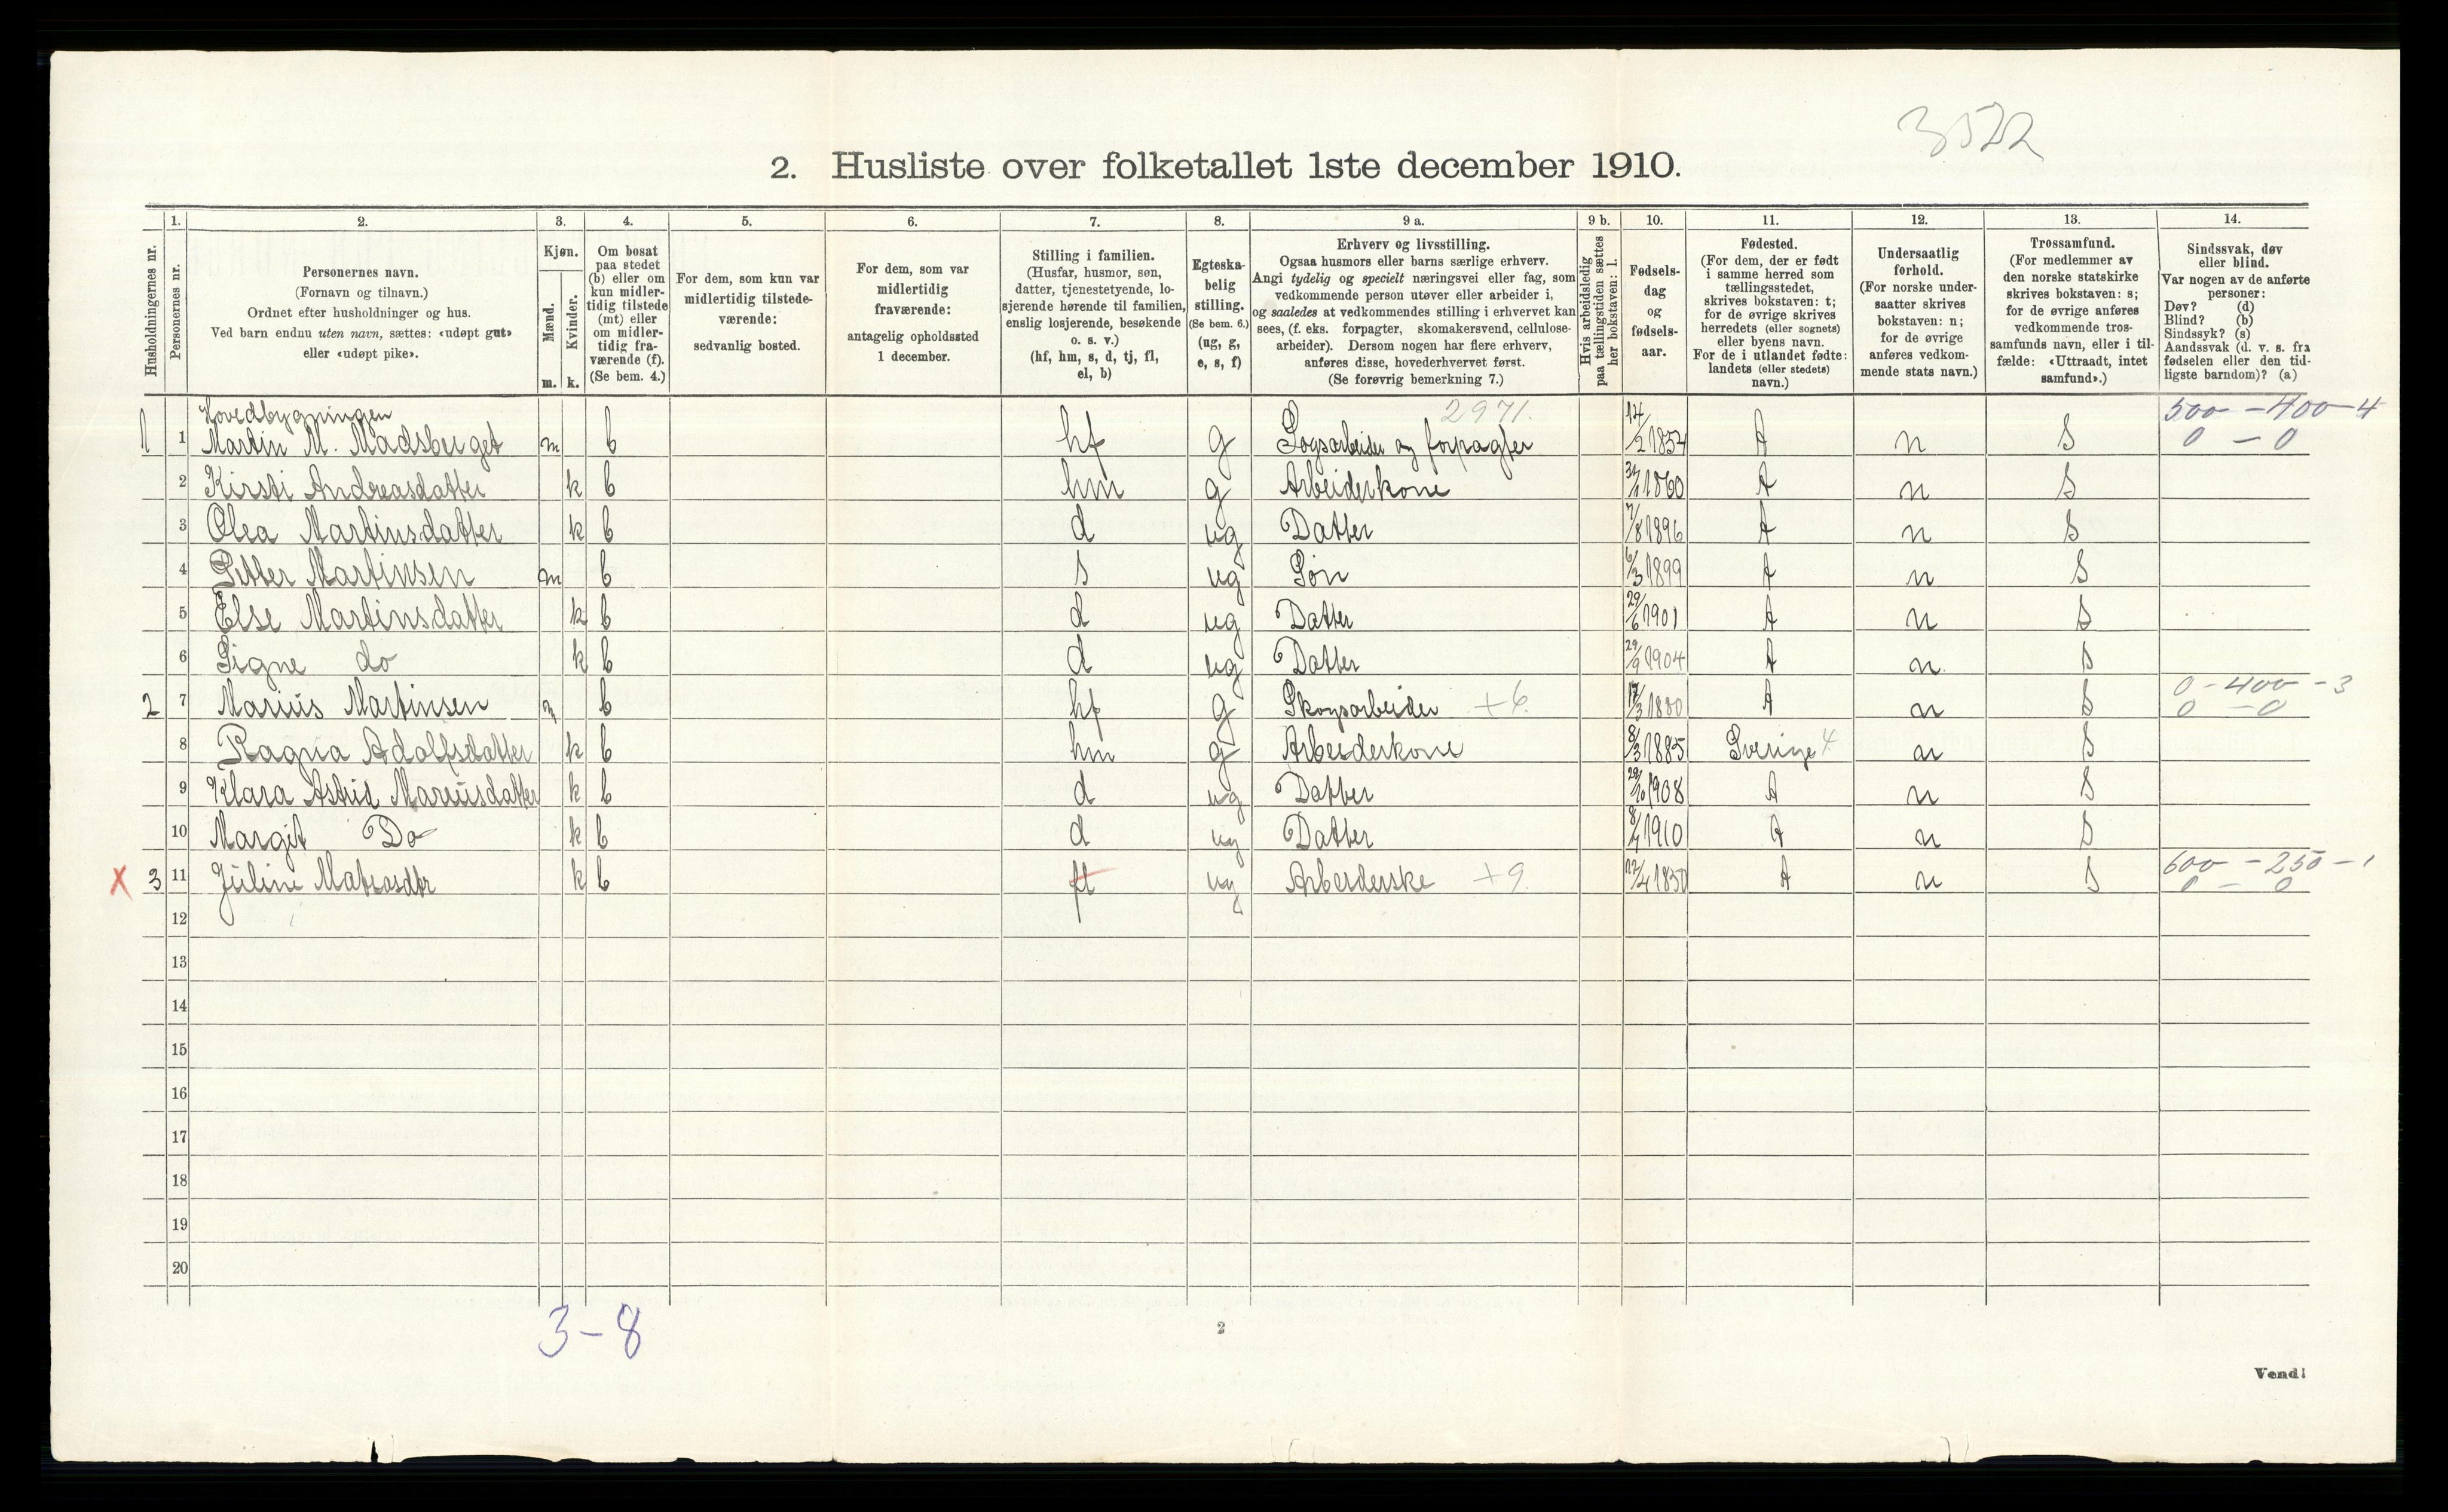 3522
2. Husliste over folketallet 1ste december 1910.
Husholdningernes nr.
1. Personernes nr.
2. Personernes navn. (Fornavn og tilnavn.) Ordnet efter husholdninger og hus. Ved barn endnu uten navn, sættes: «udøpt gut» eller «udøpt pike».
3. Kjøn. Mænd. m. Kvinder. k.
4. Om bosat paa stedet (b) eller om kun midlertidig tilstede (mt) eller om midlertidig fraværende (f). (Se bem. 4.)
5. For dem, som kun var midlertidig tilstedeværende: sedvanlig bosted.
6. For dem, som var midlertidig fraværende: antagelig opholdssted 1 december.
7. Stilling i familien. (Husfar, husmor, søn, datter, tjenestetyende, losjerende hørende til familien, enslig losjerende, besøkende o. s. v.) (hf, hm, s, d, tj, fl, el, b)
8. Egteskabelig stilling. (Se bem. 6.) (ug, g, e, s, f)
9 a. Erhverv og livsstilling. Ogsaa husmors eller barns særlige erhverv. Angi tydelig og specielt næringsvei eller fag, som vedkommende person utøver eller arbeider i, og saaledes at vedkommendes stilling i erhvervet kan sees, (f. eks. forpagter, skomakersvend, cellulosearbeider). Dersom nogen har flere erhverv, anføres disse, hovederhvervet først. (Se forøvrig bemerkning 7.)
9 b. Hvis arbeidsledig paa tællingstiden sættes her bokstaven: l.
10. Fødselsdag og fødselsaar.
11. Fødested. (For dem, der er født i samme herred som tællingsstedet, skrives bokstaven: t; for de øvrige skrives herredets (eller sognets) eller byens navn. For de i utlandet fødte: landets (eller stedets) navn.)
12. Undersaatlig forhold. (For norske undersaatter skrives bokstaven: n; for de øvrige anføres vedkommende stats navn.)
13. Trossamfund. (For medlemmer av den norske statskirke skrives bokstaven: s; for de øvrige anføres vedkommende trossamfunds navn, eller i tilfælde: «Uttraadt, intet samfund».)
14. Sindssvak, døv eller blind. Var nogen av de anførte personer: Døv? (d) Blind? (b) Sindssyk? (s) Aandssvak (d. v. s. fra fødselen eller den tidligste barndom)? (a)
Hovedbygningen 2971. 500 - 400 - 4
1 1 Martin M. Madsberget m b hf g Sogsarbeider og forpagter 14/2 1852 t n S 0 - 0
2 Kirsti Andreasdatter k b hm g Arbeiderkone 31/1 1860 t n S
3 Olea Martinsdatter k b d ug Datter 7/8 1896 t n S
4 Petter Martinsen m b s ug Søn 6/3 1899 t n S
5 Else Martinsdatter k b d ug Datter 29/6 1901 t n S
6 Signe do k b d ug Datter 29/9 1904 t n S
0 - 400 - 3
2 7 Marius Martinsen m b hf g Skogsarbeider +6. 17/3 1880 t n S 0 - 0
8 Ragna Adolfsdatter k b hm g Arbeiderkone 8/3 1885 Sverige 4 n S
9 Klara Astrid Mariusdatter k b d ug Datter 29/10 1908 t n S
10 Margit Do k b d ug Datter 8/4 1910 t n S
600 - 250 - 1
X 3 11 Juline Mateasdtr k b fl ug Arbeiderske +9. 12/4 1830 t n S 0 - 0
12
13
14
15
16
17
18
19
20
3-8
2
Vend!